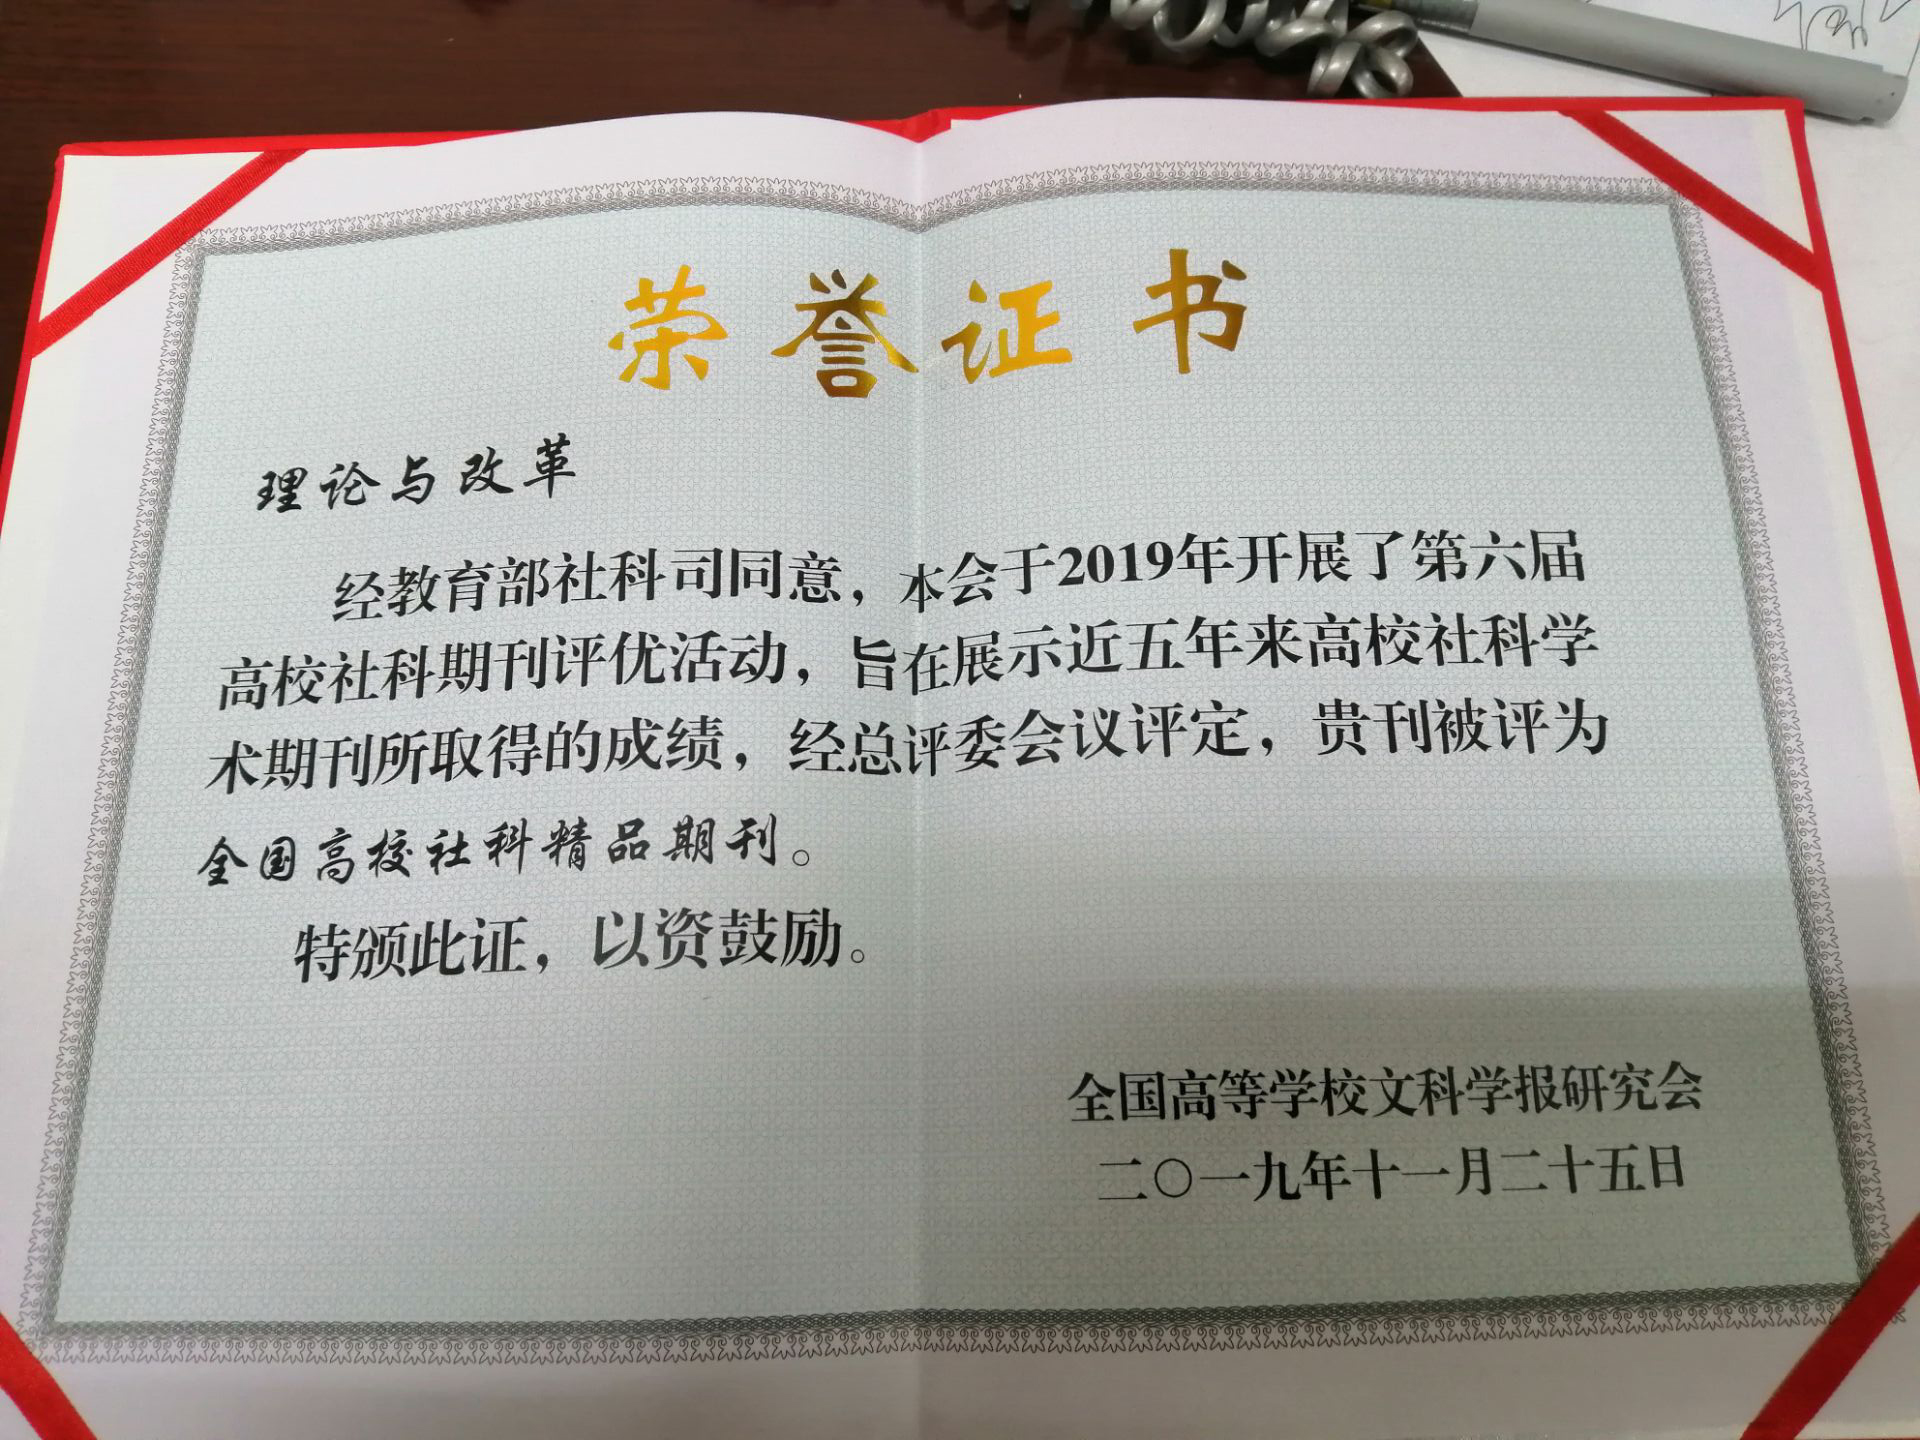 荣誉证书
理论与改革
经教育部社科司同意，本会于2019年开展了第六届
高校社科期刊评优活动，旨在展示近五年来高校社科学
术期刊所取得的成绩，经总评委会议评定，贵刊被评为
全国高校社科精品期刊。
特颁此证，以资鼓励。
全国高等学校文科学报研究会
二〇一九年十一月二十五日